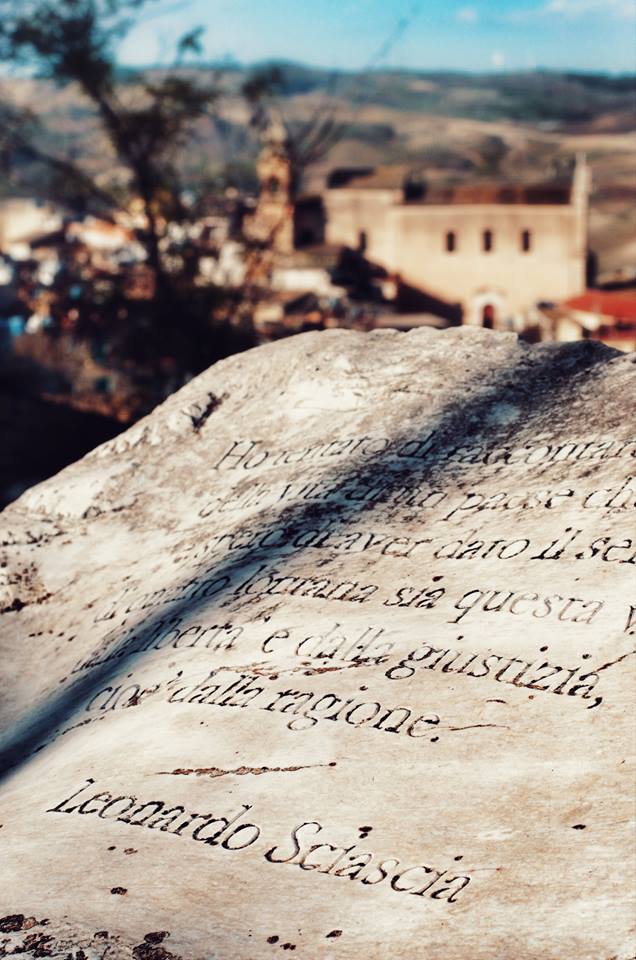 Ho tentato di raccontare
della vita di un paese che
spero di aver dato il sen
di quanto lontana sia questa v
dalla libertà e dalla giustizia,
cioè dalla ragione.
Leonardo Sciascia